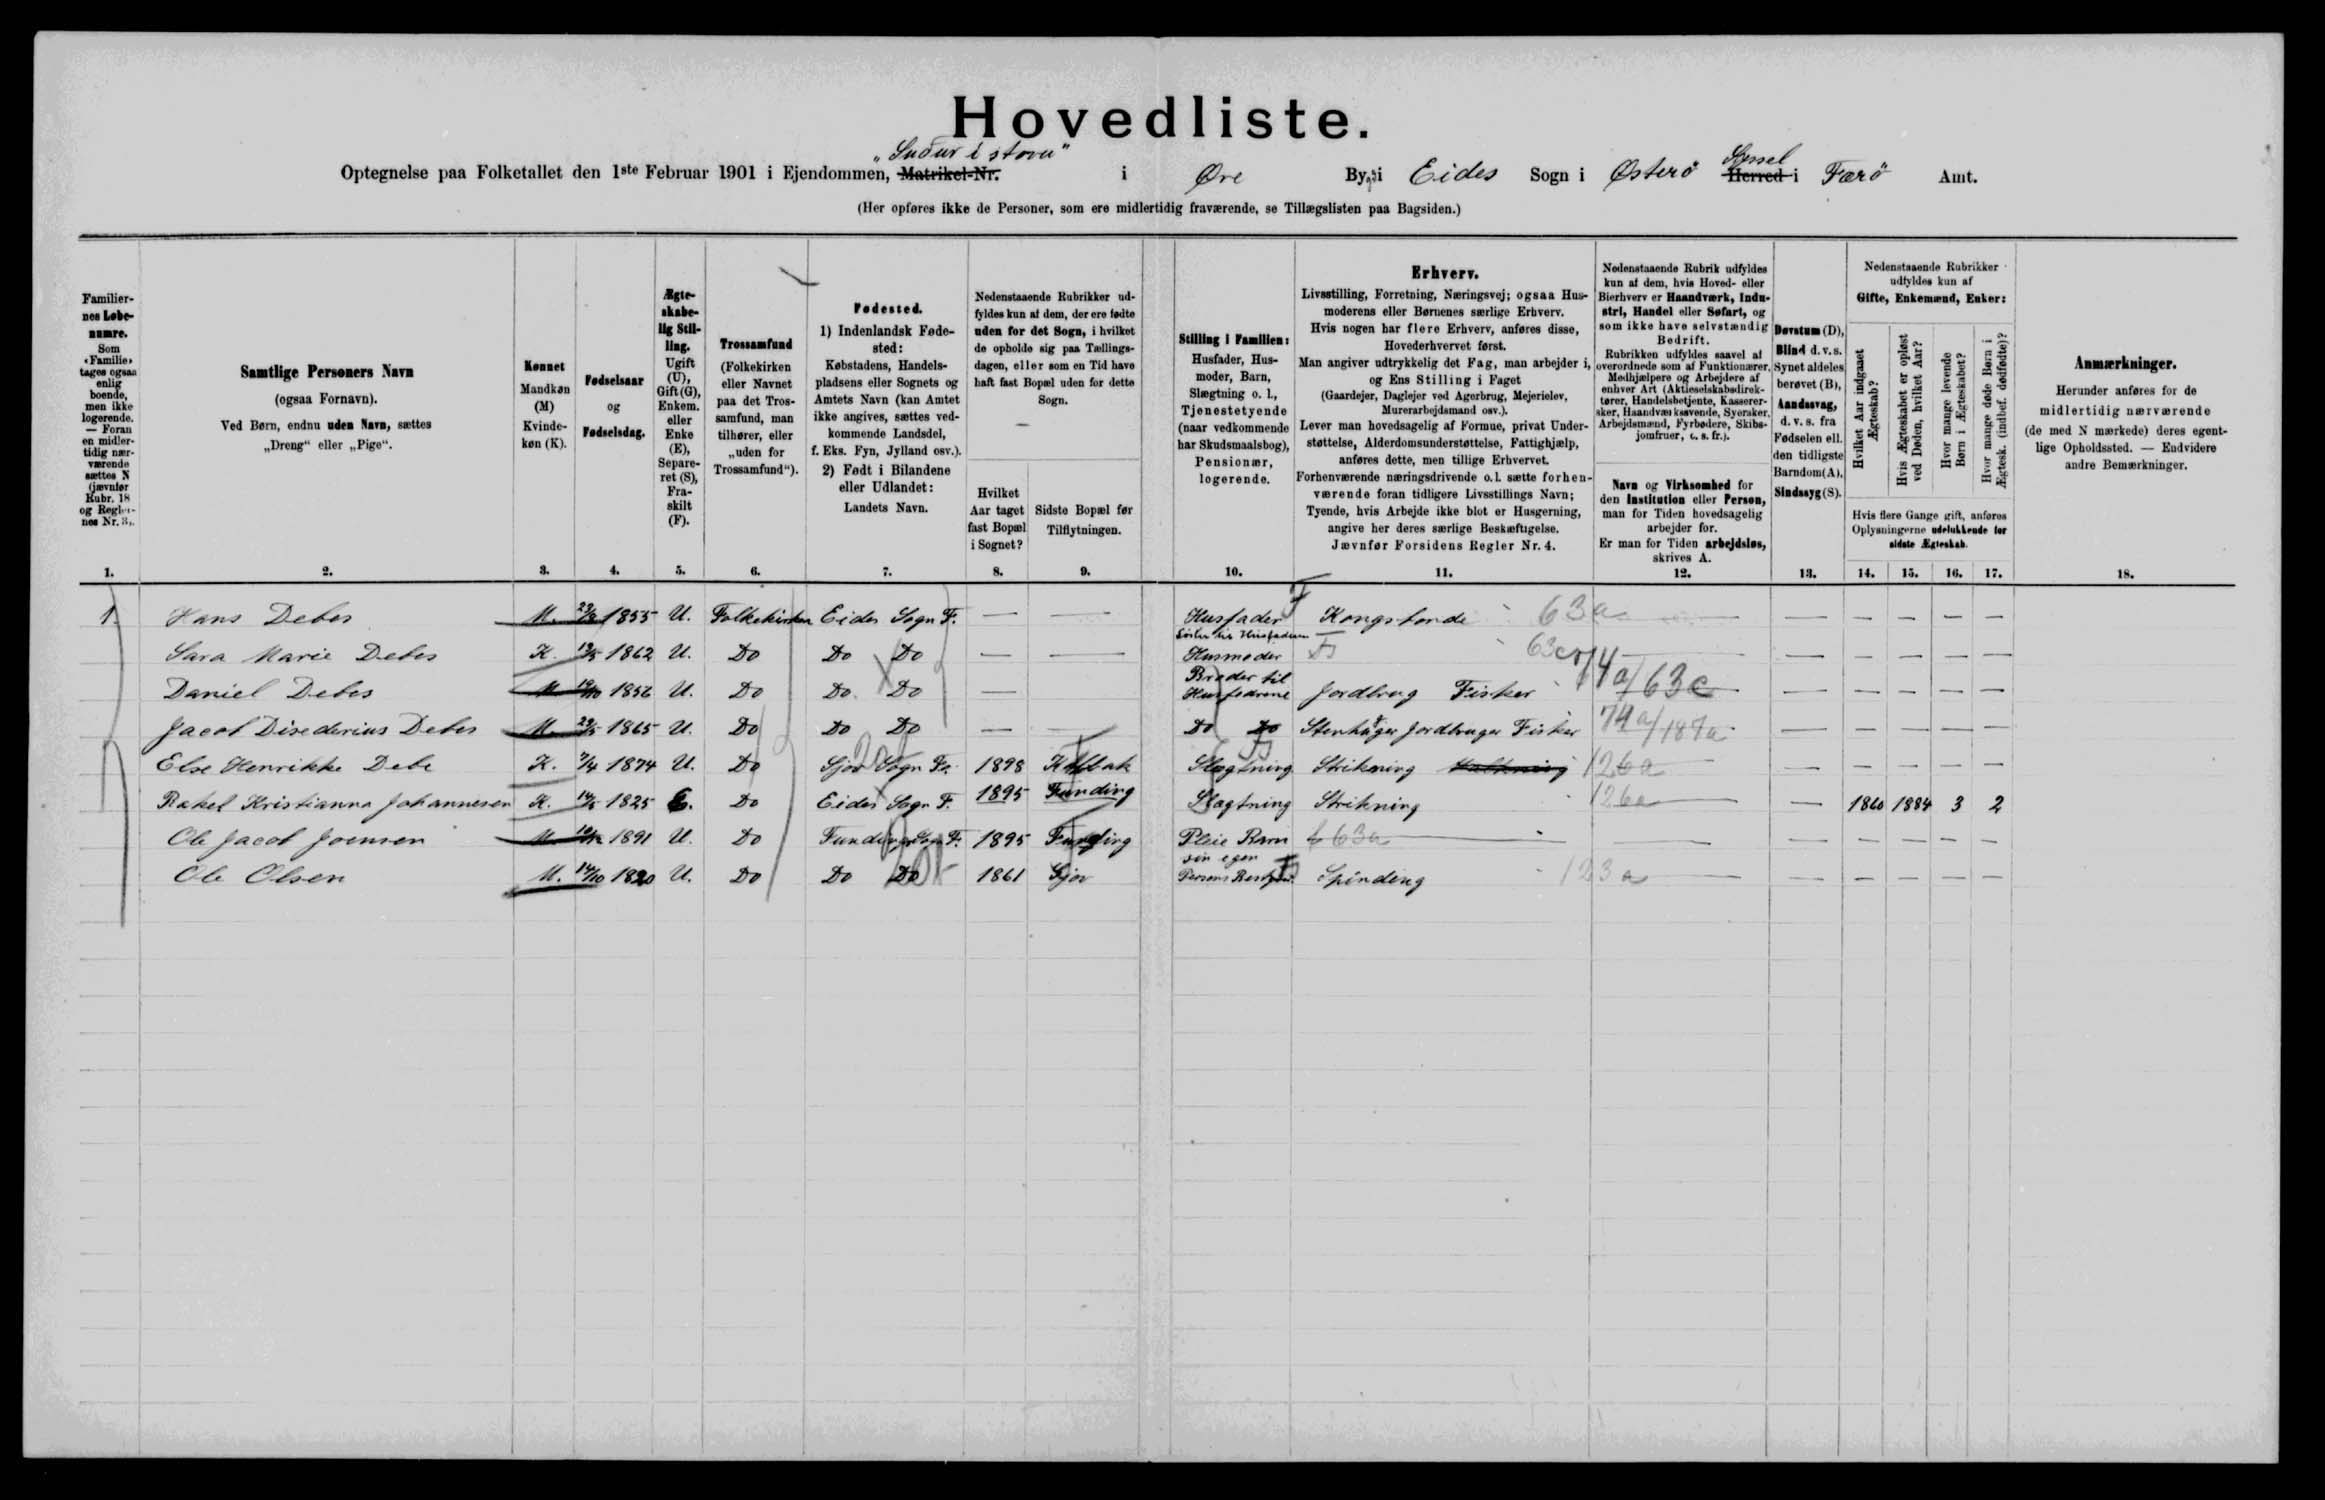 Hovedliste.
„Sudur i stovu"
Optegnelse paa Folketallet den 1ste Februar 1901 i Ejendommen, Matrikel-Nr. i Øre Bygd i Eides Sogn i Østerö Syssel Herred i Færö Amt.
(Her opføres ikke de Personer, som ere midlertidig fraværende, se Tillægslisten paa Bagsiden.)
Familiernes Løbenumre.
Som «Familie» tages ogsaa enlig boende, men ikke logerende. — Foran en midlertidig nærværende sættes N (jævnfør Rubr. 18 og Reglernes Nr. 3).
Samtlige Personers Navn
(ogsaa Fornavn).
Ved Børn, endnu uden Navn, sættes
„Dreng" eller „Pige".
Kønnet
Mandkøn (M)
Kvindekøn (K).
Fødselsaar
og
Fødselsdag.
Ægteskabelig Stilling.
Ugift (U), Gift (G), Enkem. eller Enke (E), Separeret (S), Fraskilt (F).
Trossamfund
(Folkekirken eller Navnet paa det Trossamfund, man tilhører, eller „uden for Trossamfund").
Fødested.
1) Indenlandsk Fødested:
Købstadens, Handelspladsens eller Sognets og Amtets Navn (kan Amtet ikke angives, sættes vedkommende Landsdel, f. Eks. Fyn, Jylland osv.).
2) Født i Bilandene eller Udlandet:
Landets Navn.
Nedenstaaende Rubrikker udfyldes kun af dem, der ere fødte uden for det Sogn, i hvilket de opholde sig paa Tællingsdagen, eller som en Tid have haft fast Bopæl uden for dette Sogn.
Hvilket Aar taget fast Bopæl i Sognet?
Sidste Bopæl før Tilflytningen.
Stilling i Familien:
Husfader, Husmoder, Barn, Slægtning o. l., Tjenestetyende (naar vedkommende har Skudsmaalsbog), Pensionær, logerende.
Erhverv.
Livsstilling, Forretning, Næringsvej; ogsaa Husmoderens eller Børnenes særlige Erhverv.
Hvis nogen har flere Erhverv, anføres disse, Hovederhvervet først.
Man angiver udtrykkelig det Fag, man arbejder i, og Ens Stilling i Faget
(Gaardejer, Daglejer ved Agerbrug, Mejerielev, Murerarbejdsmand osv.).
Lever man hovedsagelig af Formue, privat Understøttelse, Alderdomsunderstøttelse, Fattighjælp, anføres dette, men tillige Erhvervet.
Forhenværende næringsdrivende o. l. sætte forhenværende foran tidligere Livsstillings Navn;
Tyende, hvis Arbejde ikke blot er Husgerning, angive her deres særlige Beskæftigelse.
Jævnfør Forsidens Regler Nr. 4.
Nedenstaaende Rubrik udfyldes kun af dem, hvis Hoved- eller Bierhverv er Haandværk, Industri, Handel eller Søfart, og som ikke have selvstændig Bedrift.
Rubrikken udfyldes saavel af overordnede som af Funktionærer, Medhjælpere og Arbejdere af enhver Art (Aktieselskabsdirektører, Handelsbetjente, Kasserersker, Haandværkssvende, Syersker, Arbejdsmænd, Fyrbødere, Skibsjomfruer, o. s. fr.).
Navn og Virksomhed for den Institution eller Person, man for Tiden hovedsagelig arbejder for.
Er man for Tiden arbejdsløs, skrives A.
Døvstum (D),
Blind d.v.s. Synet aldeles berøvet (B),
Aandssvag, d. v. s. fra Fødselen ell. den tidligste Barndom (A),
Sindssyg (S).
Nedenstaaende Rubrikker udfyldes kun af
Gifte, Enkemænd, Enker:
Hvilket Aar indgaaet Ægteskab?
Hvis Ægteskabet er opløst ved Døden, hvilket Aar?
Hvor mange levende Børn i Ægteskabet?
Hvor mange døde Børn i Ægtesk. (indbef. dødfødte)?
Hvis flere Gange gift, anføres Oplysningerne udelukkende for sidste Ægteskab.
Anmærkninger.
Herunder anføres for de midlertidig nærværende (de med N mærkede) deres egentlige Opholdssted. — Endvidere andre Bemærkninger.
1. 2. 3. 4. 5. 6. 7. 8. 9. 10. 11. 12. 13. 14. 15. 16. 17. 18.
1. Hans Debes M. 1855 U. Folkekirken Eides Sogn F. — — Husfader Kongsbonde 63a — — — — —
Søster til Husfaderen
Sara Marie Debes K. 1862 U. Do Do Do — — Husmoder 63c — — — — —
Broder til
Daniel Debes M. 1856 U. Do Do Do — Husfaderene Jordbrug Fisker 74a/63c — — — — —
Jacob Disederius Debes M. 1865 U. Do Do Do — Do Do Jordbruger Fisker 74a/187a — — — — —
Else Henrikke Debe K. 7/4 1874 U. Do Sjov Sogn Fr. 1898 Kolbak Slægtning Strikning 126a — — — — —
Rakel Kristianna Johannesen K. 14/5 1825 E. Do Eides Sogn F. 1895 Funding Slægtning Strikning 126a — 1860 1884 3 2
Ole Jacob Joensen M. 1891 U. Do Fundings Sogn F. 1895 Funding Pleie Barn f 63a — — — — —
sin egen
Ole Olsen M. 14/10 1820 U. Do Do Do 1861 Gjov Persons Spinding 123a — — — — —